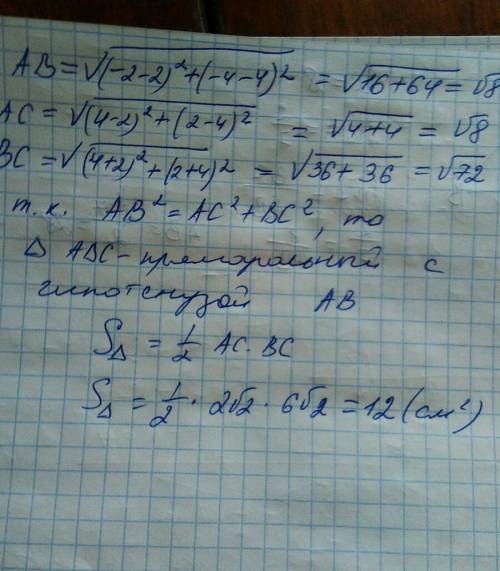 AB = √(-2-2)² + (-4-4)² = √16+64 = √8
AC = √(4-2)² + (2-4)² = √4+4 = √8
BC = √(4+2)² + (2+4)² = √36+36 = √72
т.к. AB² = AC² + BC², то
Δ ABC - прямоугольный с
гипотенузой AB
S△ = 1/2 AC · BC
S△ = 1/2 · 2√2 · 6√2 = 12 (см²)